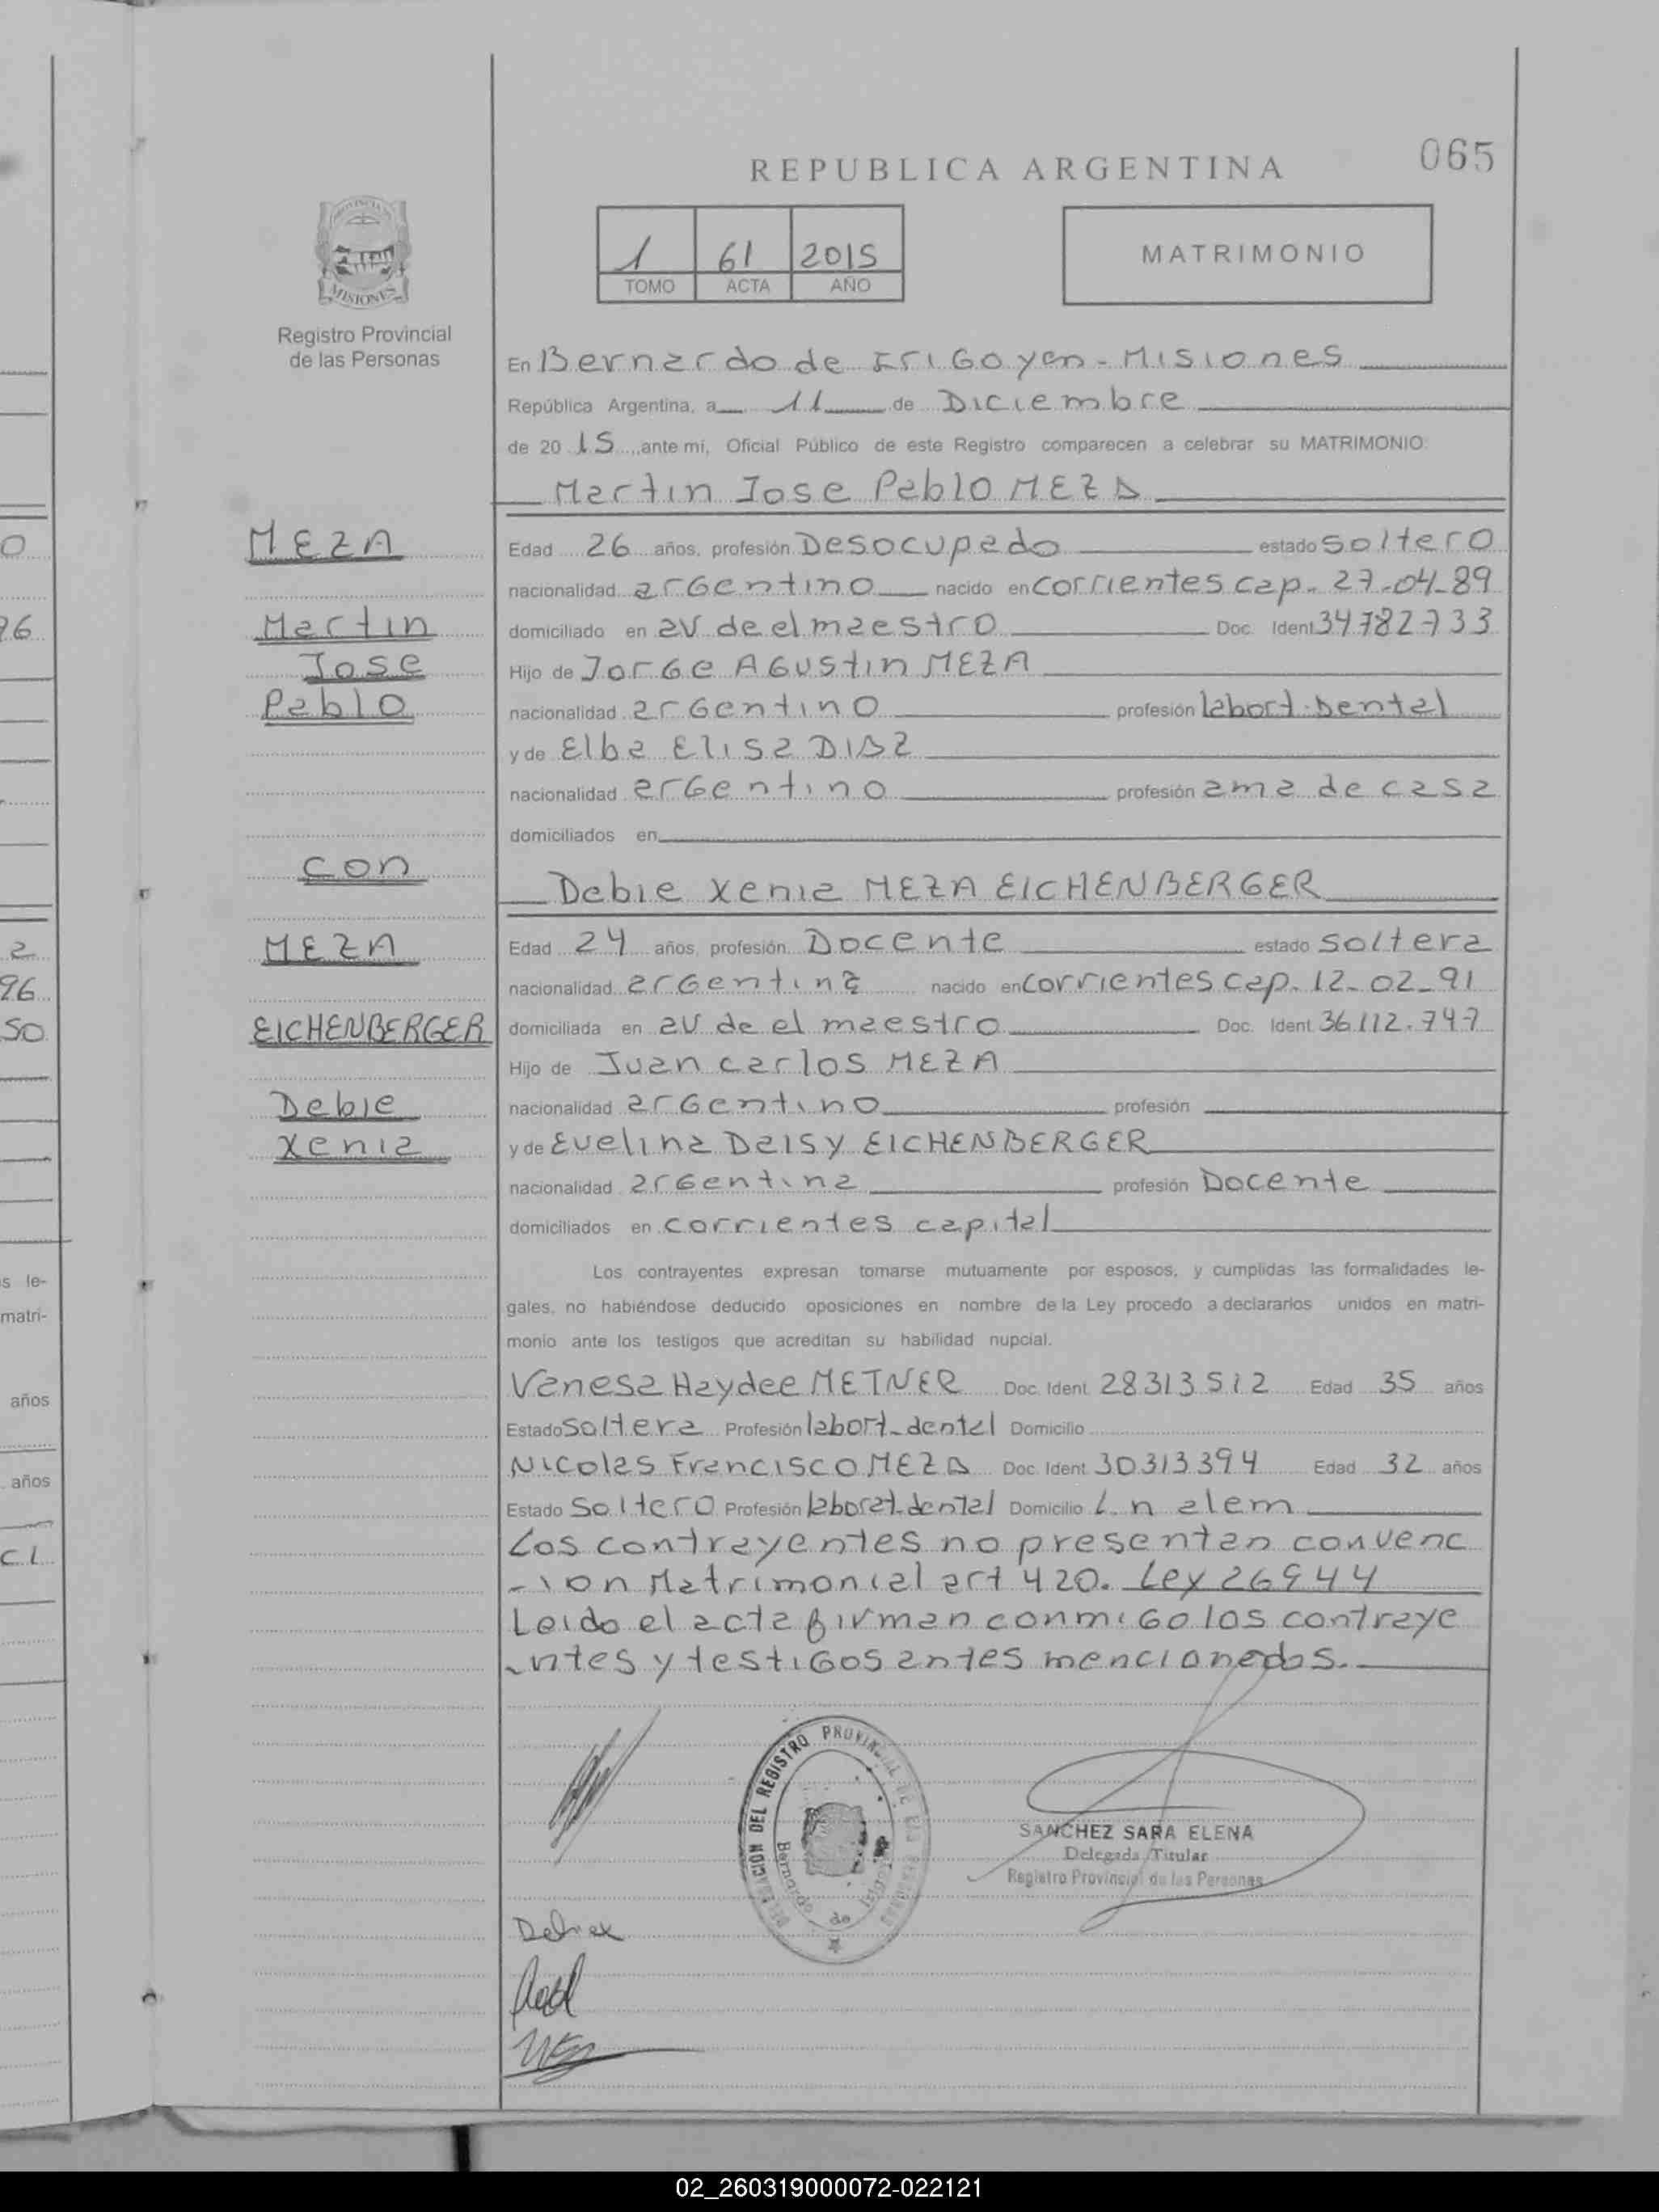 065
REPUBLICA ARGENTINA
1 61 2015
TOMO ACTA AÑO
MATRIMONIO
PROVINCIA DE
MISIONES
Registro Provincial
de las Personas
En Bernardo de Irigoyen - Misiones
República Argentina, a 11 de Diciembre
de 2015 ante mi, Oficial Público de este Registro comparecen a celebrar su MATRIMONIO:
Martin Jose Pablo MEZA
MEZA
Edad 26 años, profesión Desocupado estado soltero
nacionalidad argentino nacido en corrientes cap. 27-04-89
Martin
domiciliado en av de el maestro Doc. Ident. 34782733
Jose
Hijo de Jorge Agustin MEZA
Pablo
nacionalidad argentino profesión labort. Dental
y de Elba Elisa DIAZ
nacionalidad argentino profesión ama de casa
domiciliados en
con
Debie Xenia MEZA EICHENBERGER
MEZA
Edad 24 años, profesión Docente estado soltera
nacionalidad argentina nacido en corrientes cap. 12-02-91
EICHENBERGER
domiciliada en av de el maestro Doc. Ident. 36112.747
Hijo de Juan carlos MEZA
Debie
nacionalidad argentino profesión
Xenia
y de Evelina Daisy EICHENBERGER
nacionalidad argentina profesión Docente
domiciliados en corrientes capital
Los contrayentes expresan tomarse mutuamente por esposos, y cumplidas las formalidades le-
gales, no habiéndose deducido oposiciones en nombre de la Ley procedo a declararlos unidos en matri-
monio ante los testigos que acreditan su habilidad nupcial.
Vanesa Haydee METNER Doc. Ident. 28313512 Edad 35 años
Estado soltera Profesión labort-dental Domicilio
Nicolas Francisco MEZA Doc. Ident. 30313394 Edad 32 años
Estado soltero Profesión laborat-dental Domicilio L. n alem
Los contrayentes no presentan convenc
-ion Matrimonial art 420. Ley 26944
Leido el acta firman conmigo los contraye
-ntes y testigos antes mencionados.
DELEGACIÓN DEL REGISTRO PROVINCIAL DE LAS PERSONAS
Bernardo de Irigoyen
SANCHEZ SARA ELENA
Delegada Titular
Registro Provincial de las Personas
0
96
2
96
50
s le-
matri-
años
años
02_260319000072-022121